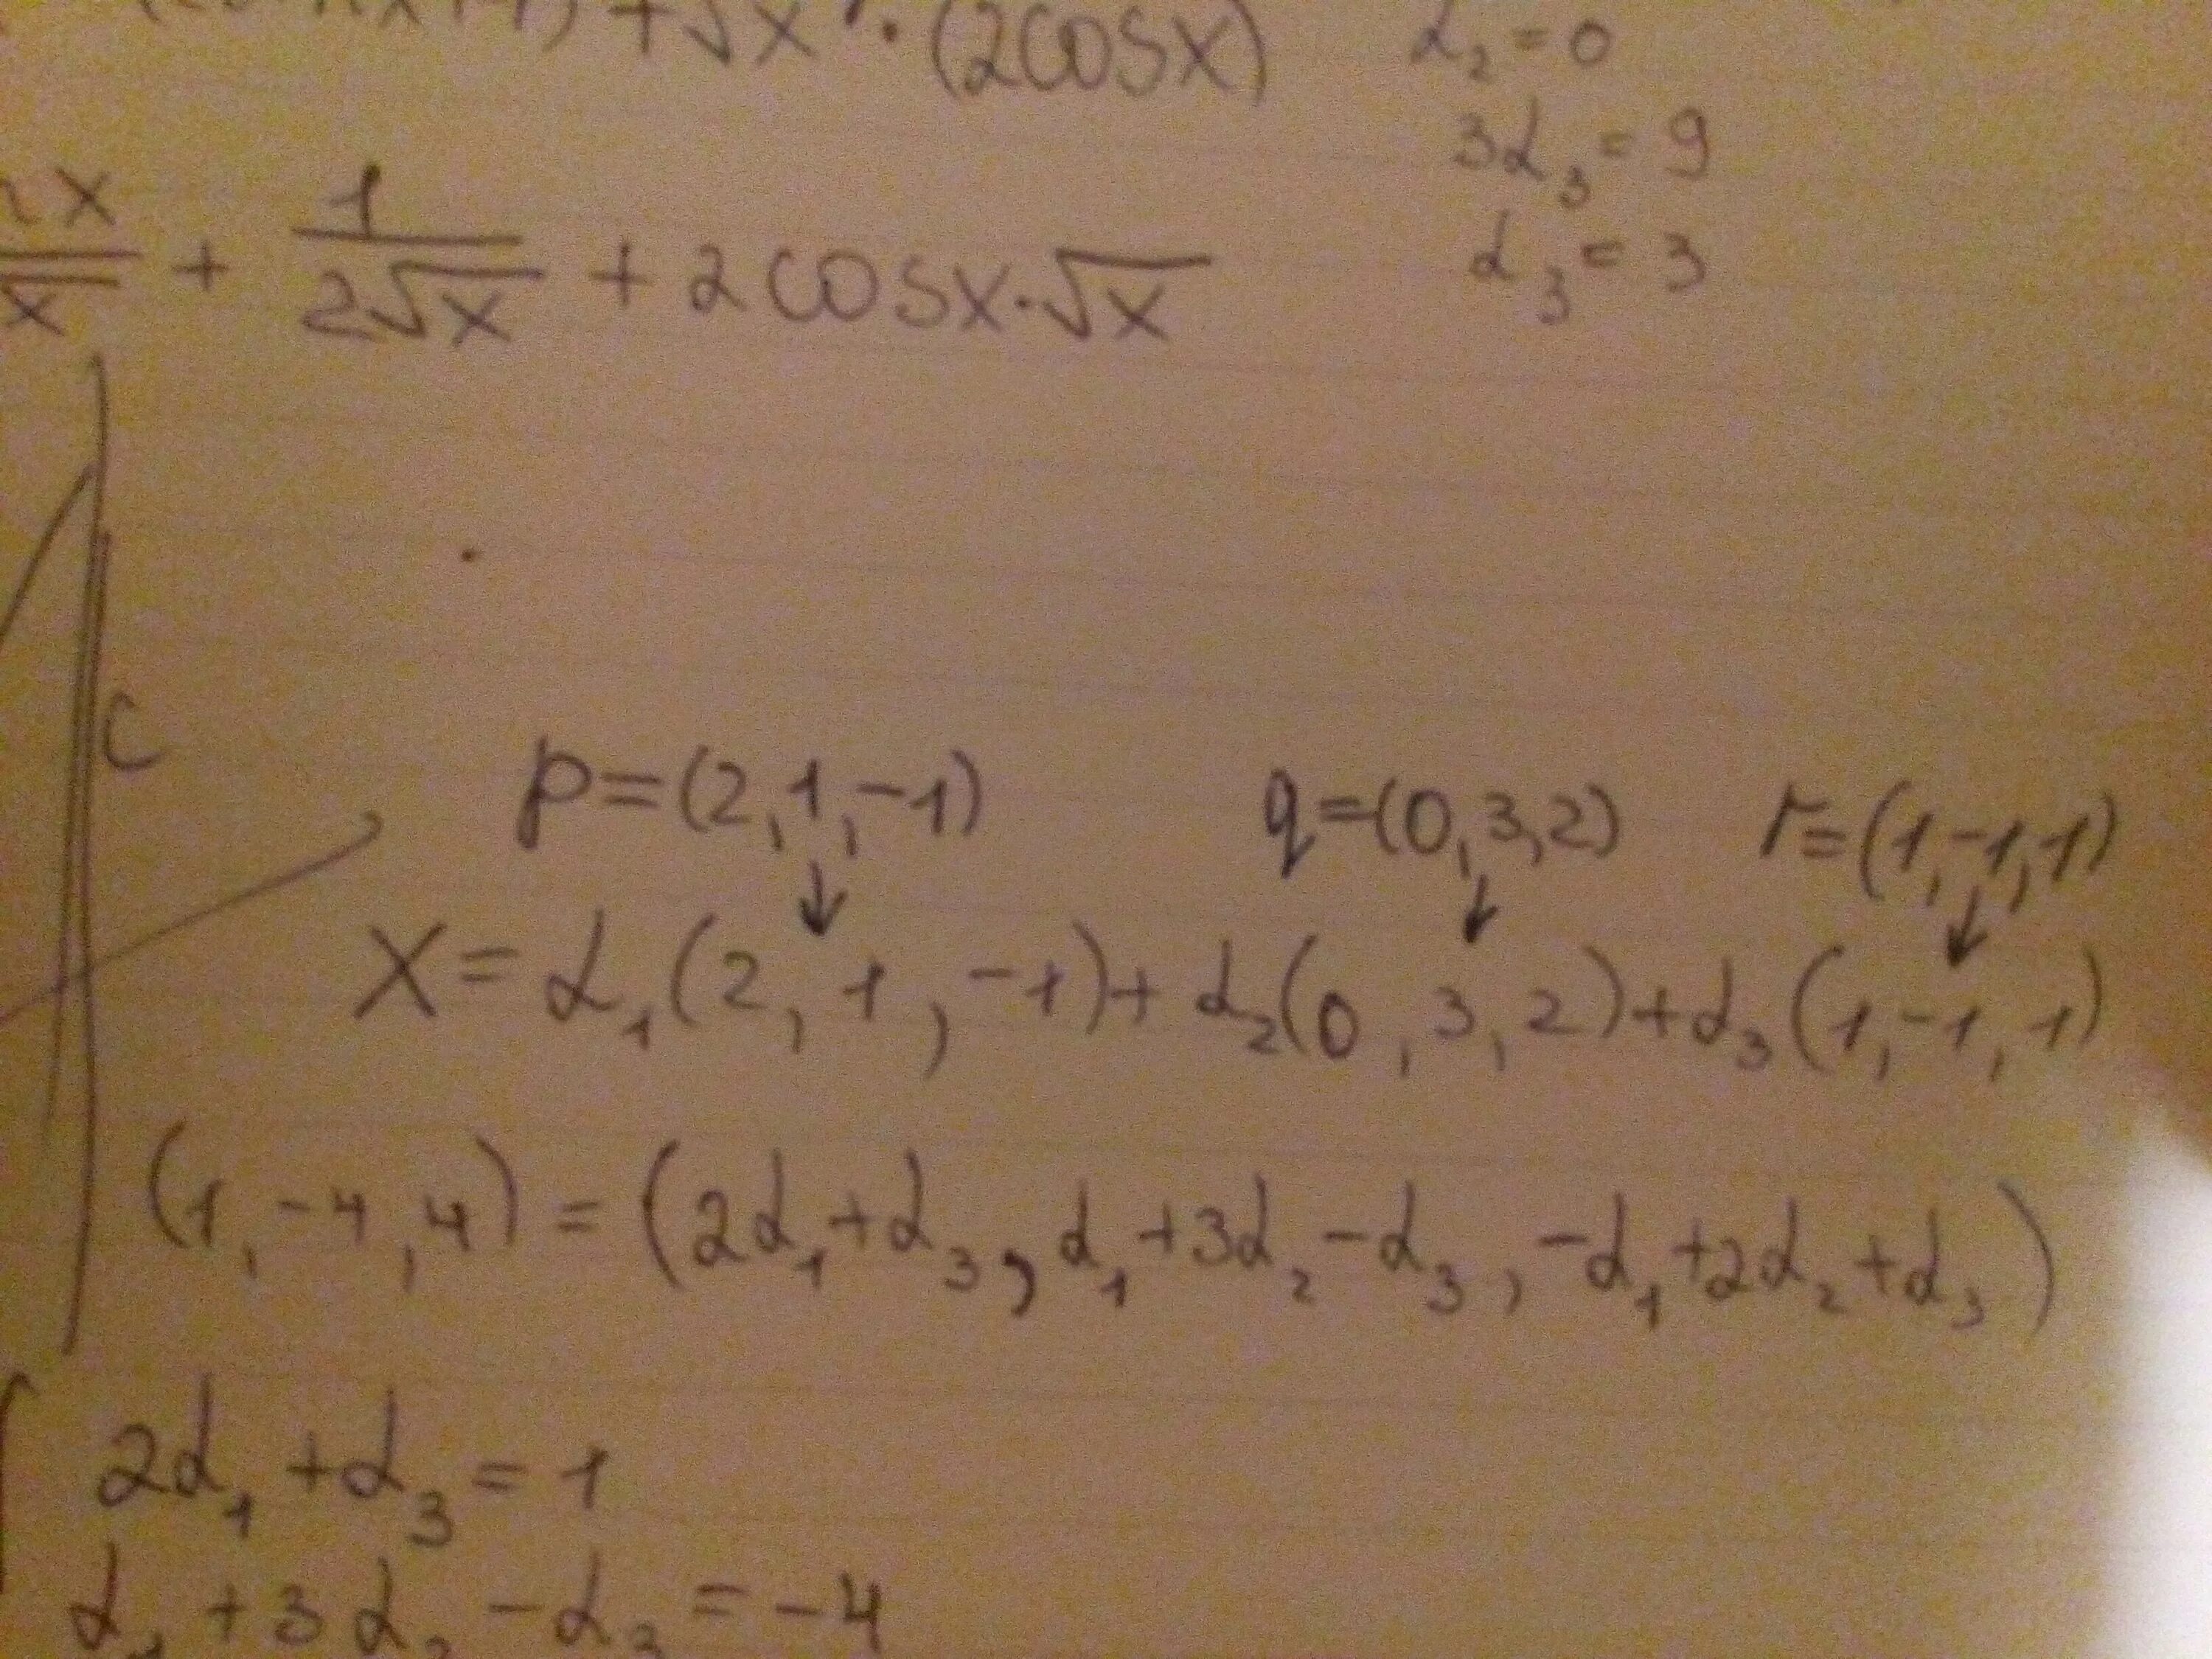 + √x · (2cosx)
α₂ = 0
3α₃ = 9
α₃ = 3
+ 1/(2√x) + 2cosx·√x
C
p=(2,1,-1) q=(0,3,2) r=(1,-1,1)
X= α₁(2, 1, -1)+ α₂(0, 3, 2)+α₃(1,-1,1)
(1, -4, 4) = (2α₁+α₃, α₁+3α₂-α₃, -α₁+2α₂+α₃)
2α₁ +α₃ = 1
α₁ +3α₂ -α₃ = -4